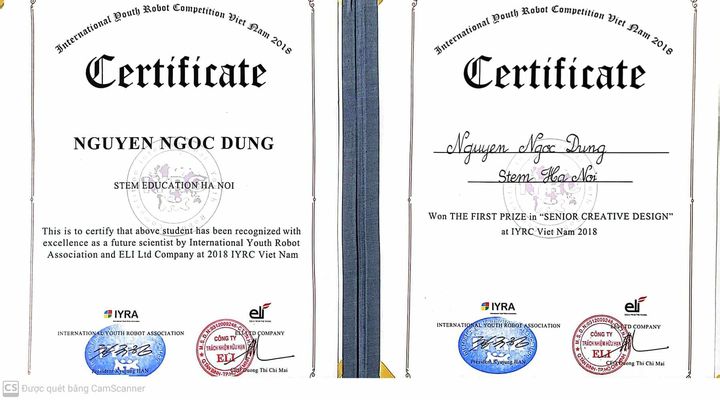 International Youth Robot Competition Viet Nam 2018
Certificate
NGUYEN NGOC DUNG
STEM EDUCATION HA NOI
This is to certify that above student has been recognized with
excellence as a future scientist by International Youth Robot
Association and ELI Ltd Company at 2018 IYRC Viet Nam
IYRA
eli
INTERNATIONAL YOUTH ROBOT ASSOCIATION
ELI LTD COMPANY
CÔNG TY
TRÁCH NHIỆM HỮU HẠN
ELI
President Kyspung HAN
CEO Duong Thi Chi Mai
International Youth Robot Competition Viet Nam 2018
Certificate
Nguyen Ngoc Dung
Stem Ha Noi
Won THE FIRST PRIZE in “SENIOR CREATIVE DESIGN”
at IYRC Viet Nam 2018
IYRA
eli
INTERNATIONAL YOUTH ROBOT ASSOCIATION
ELI LTD COMPANY
CÔNG TY
TRÁCH NHIỆM HỮU HẠN
ELI
President Kyspung HAN
CEO Duong Thi Chi Mai
CS Được quét bằng CamScanner